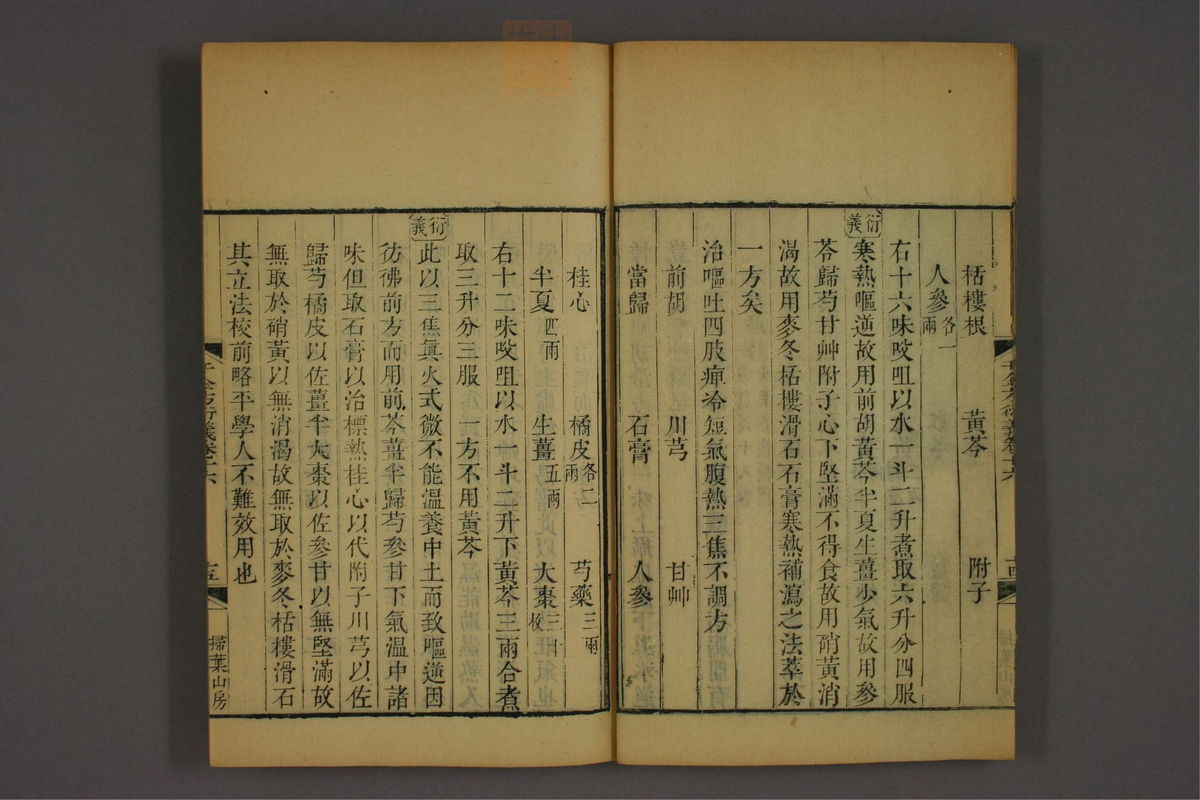 栝樓根 黃芩 附子
人參各一兩
右十六味㕮咀以水一斗二升煮取六升分四服
衍義
寒熱嘔逆故用前胡黃芩半夏生薑少氣故用參
苓歸芍甘艸附子心下堅滿不得食故用硝黃消
渴故用麥冬栝樓滑石石膏寒熱補瀉之法萃於
一方矣
治嘔吐四肢痺冷短氣腹熱三焦不調方
前胡 川芎 甘艸
當歸 石膏 人參
桂心 橘皮各二兩 芍藥三兩
半夏四兩 生薑五兩 大棗三十枚
右十二味㕮咀以水一斗二升下黃芩三兩合煮
取三升分三服 一方不用黃芩
衍義
此以三焦眞火式微不能溫養中土而致嘔逆因
彷彿前方而用前芩薑半歸芍參甘下氣溫中諸
味但取石膏以治標熱桂心以代附子川芎以佐
歸芍橘皮以佐薑半大棗以佐參甘以無堅滿故
無取於硝黃以無消渴故無取於麥冬栝樓滑石
其立法梭前略平學人不難效用也
千金方衍義卷十六
十五
掃葉山房